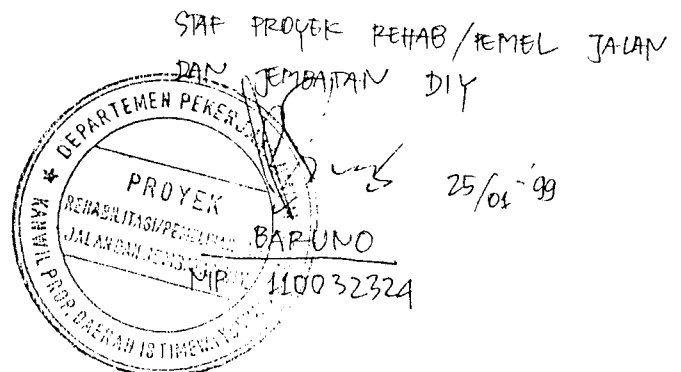 STAF PROYEK REHAB/PEMEL JALAN
DAN JEMBATAN DIY
25/01-'99
BARUNO
NIP 110032324
DEPARTEMEN PEKERJAAN UMUM
PROYEK
REHABILITASI/PEMELIHARAAN
JALAN DAN JEMBATAN
KANWIL PROP. DAERAH ISTIMEWA